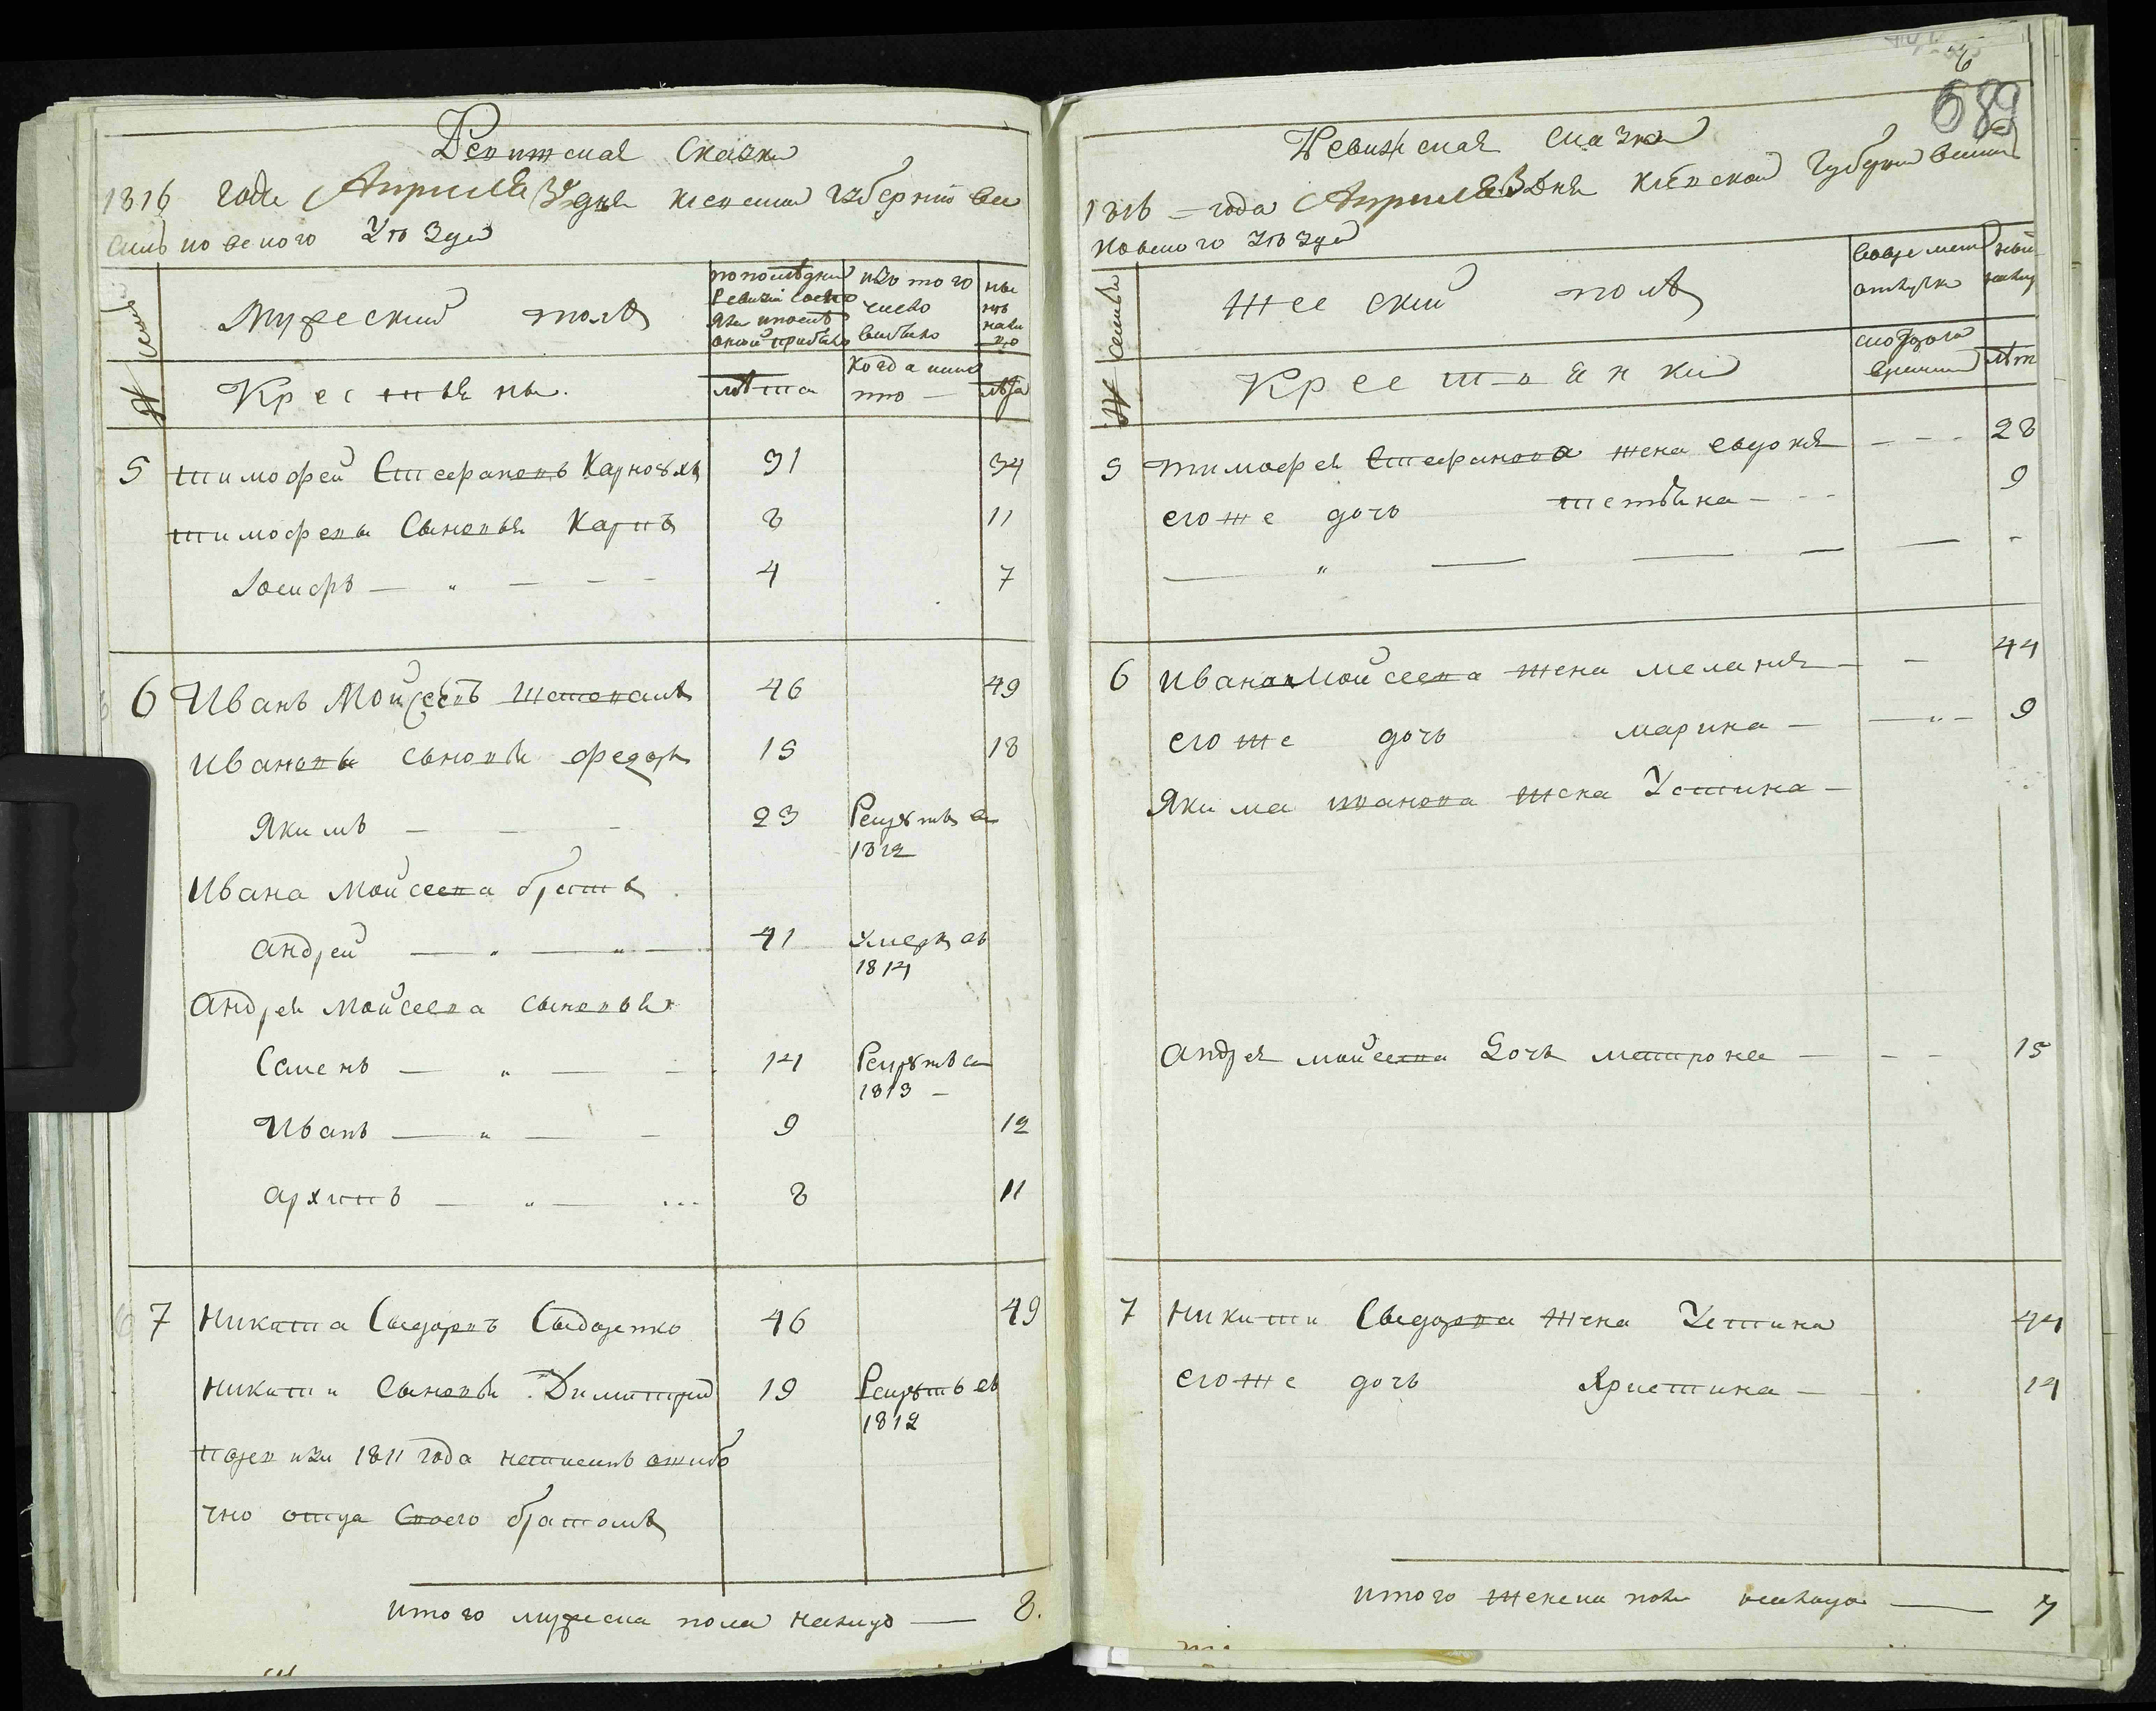 Ревижская Сказка
1816 года Апреля 30 дня Киевской Губернии Ва
силковского Уѣзда
№ семей
Мужеский полъ
по последней Ревизіи состо
яло и послѣ оной прибыло
изъ того числа выбыло
ны нѣ на ли цо
Крестьяне.
лѣта
Когда имянно
лѣта
5 Тимофей Стефановъ Карповъ 31 34
Тимофева Сыновья Карпъ 8 11
Іосифъ — „ — — — 4 7
6 Иванъ Мойсеевъ 46 49
Иванова сыновья Федоръ 15 18
Якимъ — — — 23 Рекрутъ въ
1812
Ивана Мойсеева братъ
Андрей — „ — „ — 41 Умеръ въ
1814
Андрея Мойсеева сыновья
Семенъ — „ — — 14 Рекрутъ въ
1813 —
Иванъ — „ — — 9 12
Архипъ — „ — ... 8 11
7 Никита Сыдоровъ Сыдоренко 46 49
Никиты Сыновья Димитрий 19 Рекрутъ въ
1812
по ревизіи 1811 года написанъ ошибо
чно отца своего братомъ
Итого мужеска пола налицо — 8.
6
689
Ревижская сказка
1816 — года Апреля 30 Дня Киевской Губернии Васил
ковского Уѣзда
№ семей
Женский полъ
Во временной отлучке
ныне налицо
Крестьянки
съ котораго времени
лѣт
5 Тимофея Стефанова жена Евдокия — — — 28
его же дочь Тетяна — — — 9
— „ — — — — -
6 Ивана Мойсеева жена Мелания — — 44
его же дочь Марина — — „ — 9
Якима Иванова жена Устина —
Андрея Мойсеева Дочь Матрона — — — 15
7 Никиты Сыдорова жена Устина 44
его же дочь Христина — — . 14
итого женска пола налицо — 7